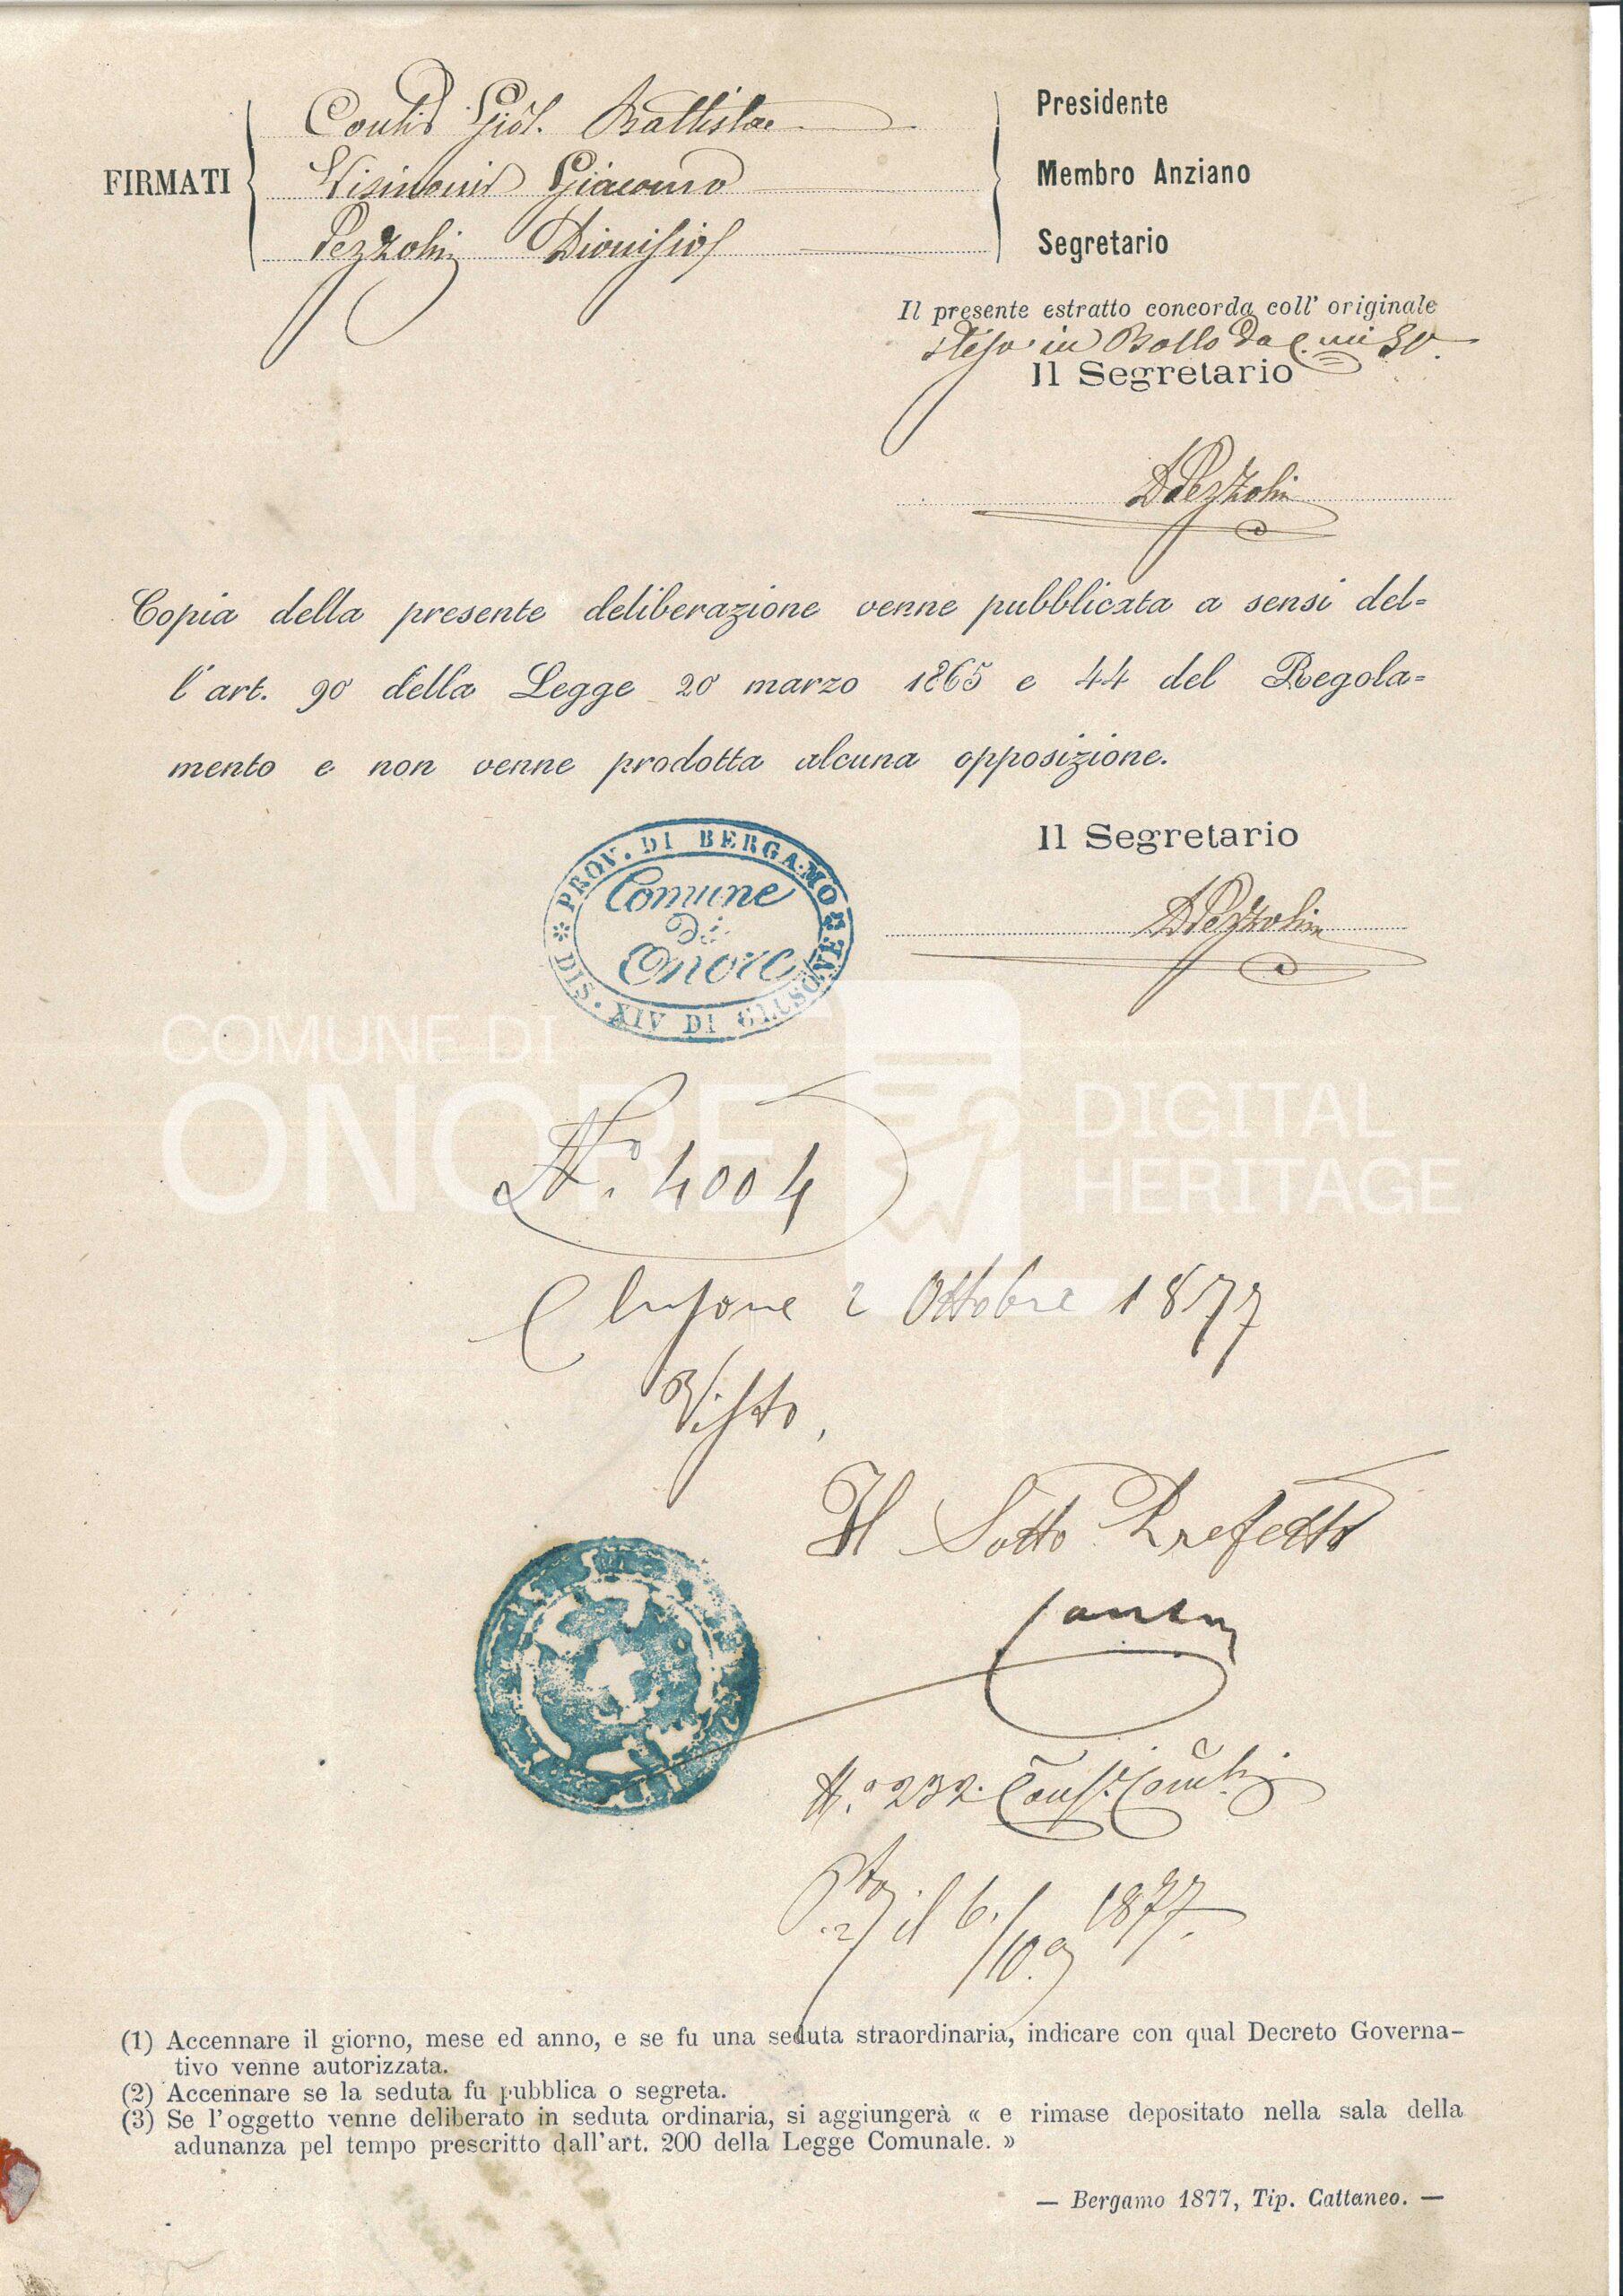 FIRMATI
Giov. Battista Presidente
Giacomo Membro Anziano
Pezzoli Dionisio Segretario
Il presente estratto concorda coll' originale
steso in Bollo da C.mi 50.
Il Segretario
DPezzoli
Copia della presente deliberazione venne pubblicata a sensi del=
l'art. 90 della Legge 20 marzo 1865 e 44 del Regola=
mento e non venne prodotta alcuna opposizione.
Il Segretario
DPezzoli
PROV. DI BERGAMO
Comune
di
Onore
DIS. XIV DI CLUSONE
COMUNE DI
ONORE
DIGITAL
HERITAGE
N.° 4004
Clusone 2 Ottobre 1877
Visto,
Il Sotto Prefetto
N.° 232
il 6/10 1877.
(1) Accennare il giorno, mese ed anno, e se fu una seduta straordinaria, indicare con qual Decreto Governa-
tivo venne autorizzata.
(2) Accennare se la seduta fu pubblica o segreta.
(3) Se l'oggetto venne deliberato in seduta ordinaria, si aggiungerà « e rimase depositato nella sala della
adunanza pel tempo prescritto dall'art. 200 della Legge Comunale. »
— Bergamo 1877, Tip. Cattaneo. —